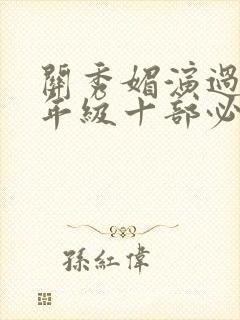 關秀媚演過
年級十部必
孫紅偉